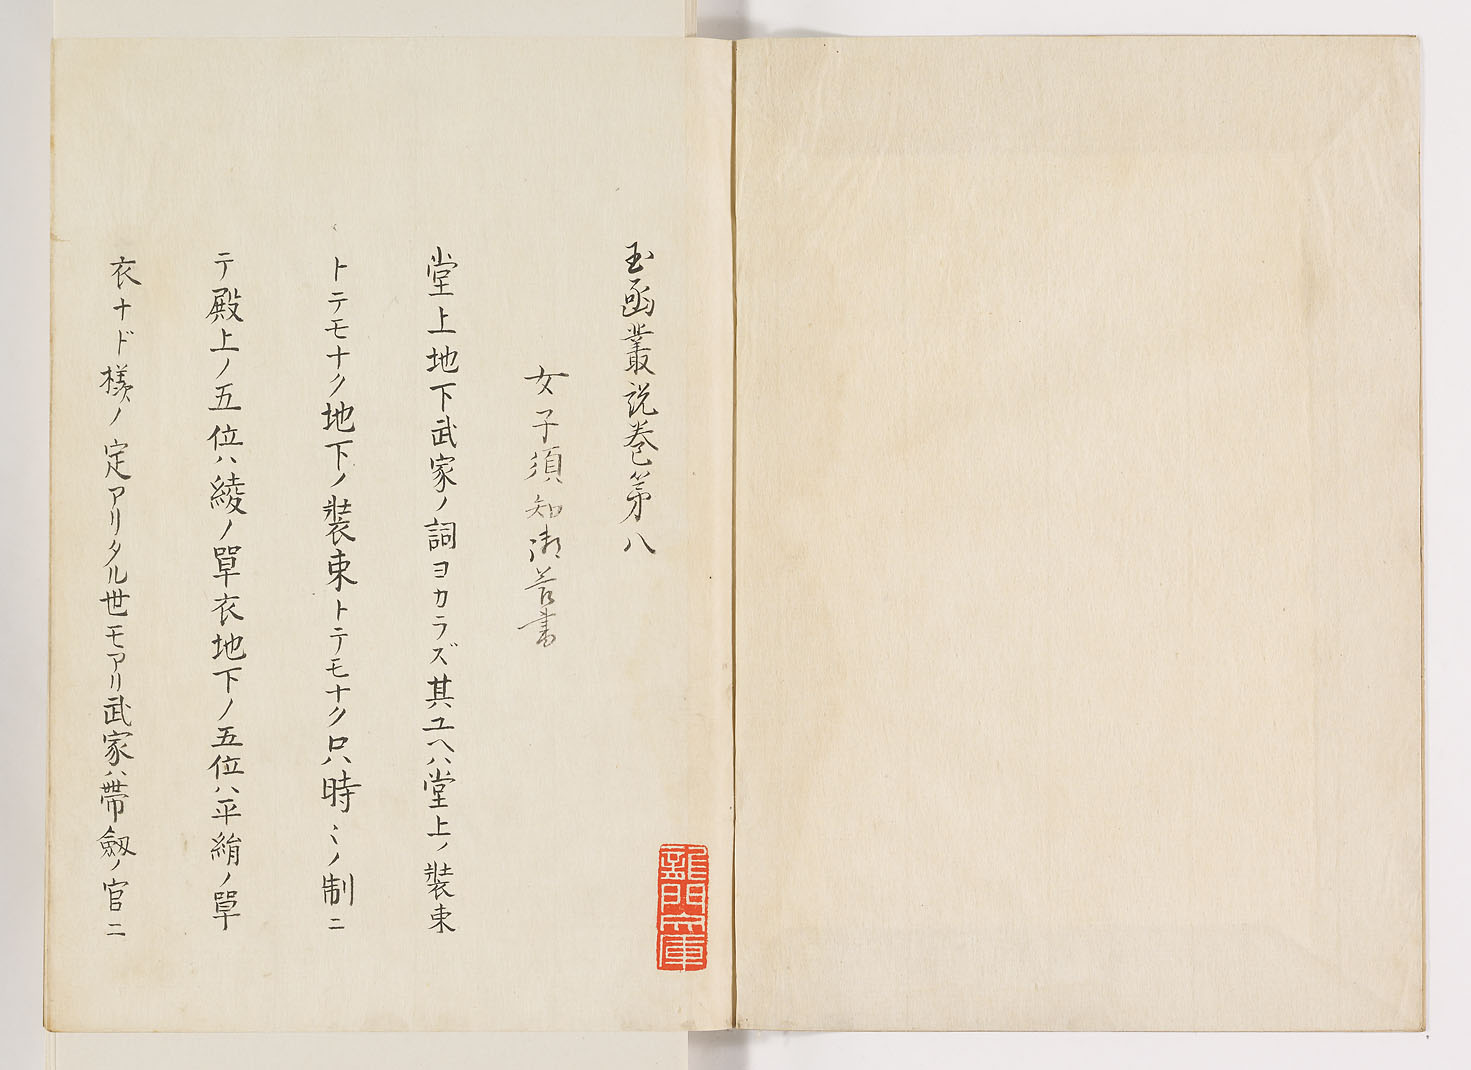 玉函叢説巻第八
女子須知御答書
堂上地下武家ノ詞ヨカラズ其ユヘハ堂上ノ装束
トテモナク地下ノ装束トテモナク只時ミノ制ニ
テ殿上ノ五位ハ綾ノ単衣地下ノ五位ハ平絹ノ単
衣ナド様ノ定アリタル世モアリ武家ハ帯剱ノ官ニ
龍門文庫